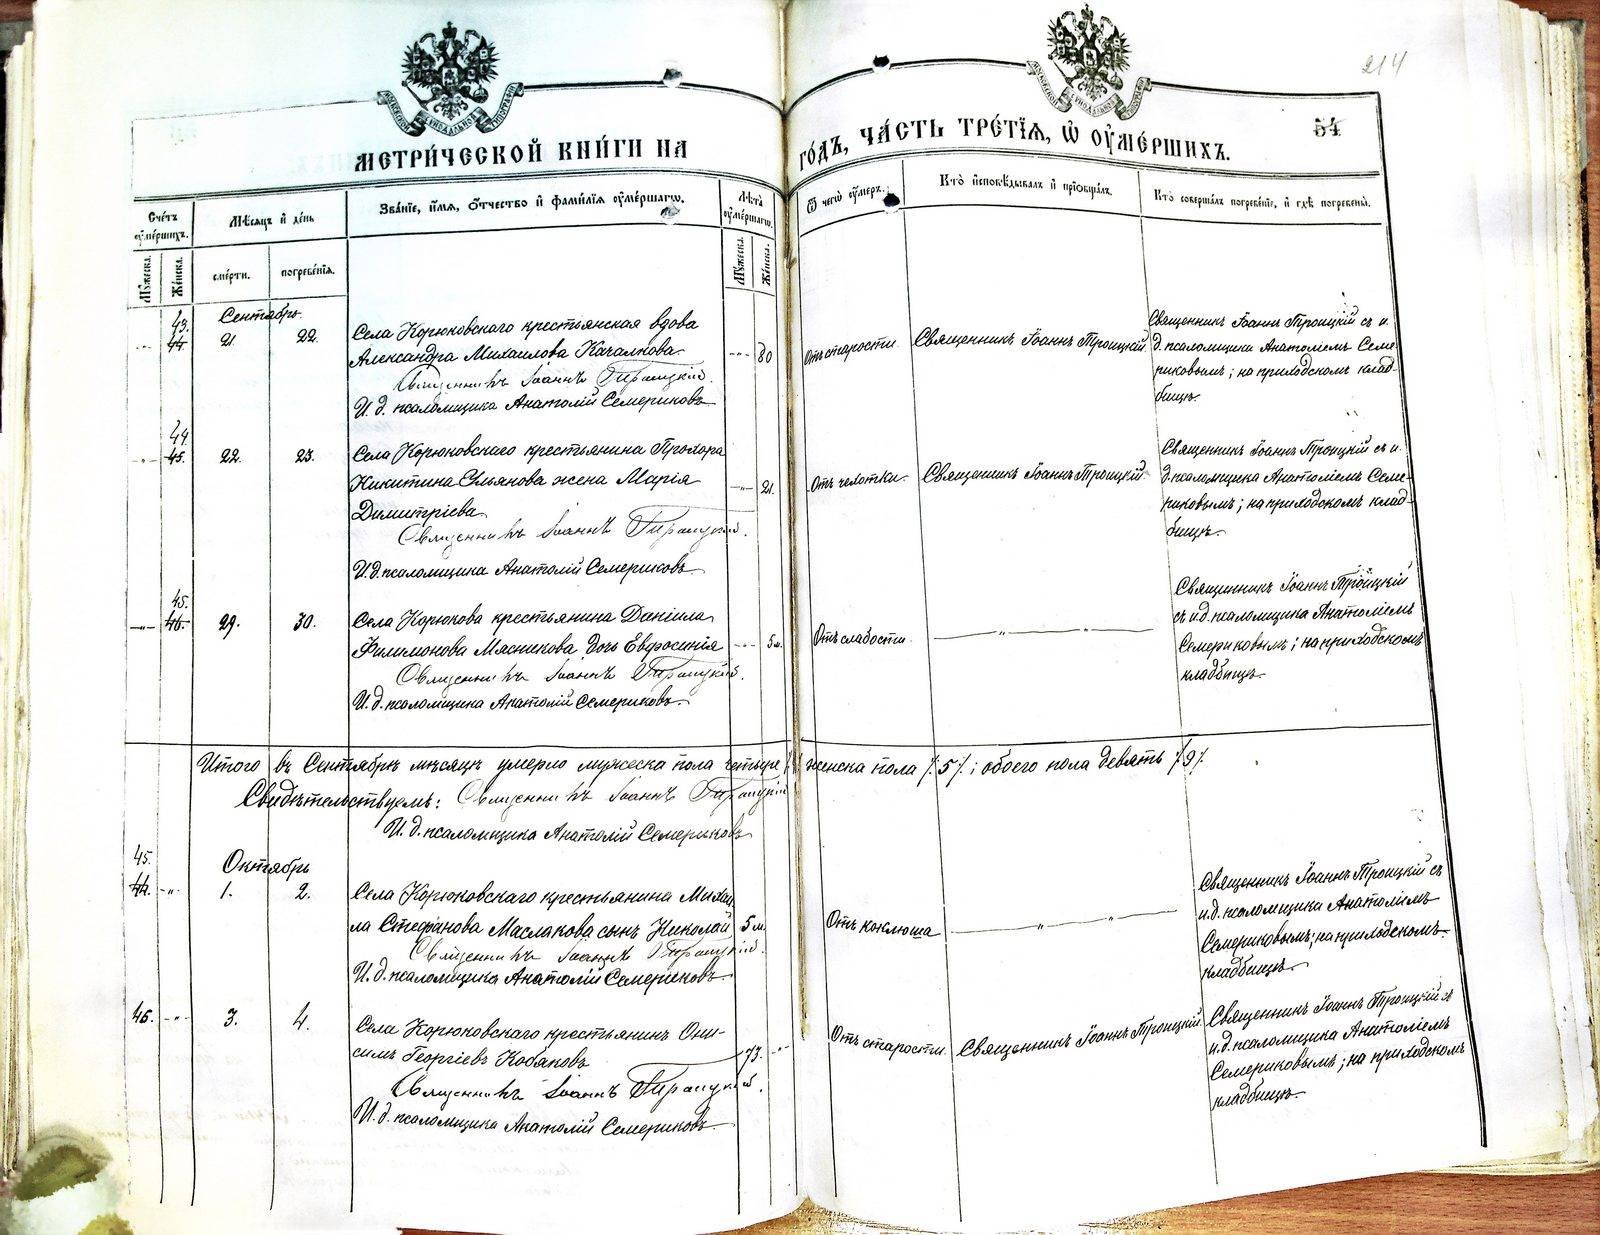 214
54
МОСКОВСКОЙ СѴНОДАЛЬНОЙ ТИПОГРАФІИ
МОСКОВСКОЙ СѴНОДАЛЬНОЙ ТИПОГРАФІИ
МЕТРИ́ЧЕСКОЙ КНИ́ГИ НА
ГО́ДЪ, ЧА́СТЬ ТРЕ́ТІѦ, Ѽ ОУ҆МЕ́РШИХЪ.
Сче́тъ оу҆ме́ршихъ.
Мѣ́сяцъ и҆ де́нь
Зва́ніе, и҆́мѧ, ѻ҆́тчество и҆ фами́лїѧ оу҆ме́ршагѡ.
Лѣ́та оу҆ме́ршагѡ.
Ѿ чегѡ̀ оу҆́меръ.
Кто̀ и҆сповѣ́дывалъ и҆ прїѡбща́лъ.
Кто̀ соверша́лъ погребе́нїе, и҆ гдѣ̀ погребены̀.
Му́жеска.
Же́нска.
сме́рти.
погребе́нїѧ.
Му́жеска.
Же́нска.
Сентябрь
43.
44. 21. 22. Села Корюковскаго крестьянская вдова
Александра Михаилова Качалкова 80
Священникъ Іоаннъ Троицкій.
И. д. псаломщика Анатолій Семериковъ
Отъ старости. Священникъ Іоаннъ Троицкій
Священникъ Іоаннъ Троицкій съ и.
д. псаломщика Анатоліемъ Семе-
риковымъ; на приходскомъ клад-
бищѣ.
44.
45. 22. 23. Села Корюковскаго крестьянина Прохора
Никитина Ульянова жена Марія 21.
Димитріева
Священникъ Іоаннъ Троицкій.
И. д. псаломщика Анатолій Семериковъ.
Отъ чехотки. Священникъ Іоаннъ Троицкій
Священникъ Іоаннъ Троицкій съ и.
д. псаломщика Анатоліемъ Семе-
риковымъ; на приходскомъ клад-
бищѣ.
45.
46. 29. 30. Села Корюкова крестьянина Даніила
Филимонова Мясникова дочь Евфросинія 5 м.
Священникъ Іоаннъ Троицкій.
И. д. псаломщика Анатолій Семериковъ.
Отъ слабости.
Священникъ Іоаннъ Троицкій
съ и. д. псаломщика Анатоліемъ
Семериковымъ; на приходскомъ
кладбищѣ.
Итого въ Сентябрѣ мѣсяцѣ умерло мужеска пола четыре женска пола /:5/:; обоего пола девять /:9/:
Свидѣтельствуемъ: Священникъ Іоаннъ Троицкій
И. д. псаломщика Анатолій Семериковъ
Октябрь
45.
44. 1. 2. Села Корюковскаго крестьянина Михаи-
ла Стефанова Маслакова сынъ Николай 5 м.
Священникъ Іоаннъ Троицкій.
И. д. псаломщика Анатолій Семериковъ.
Отъ коклюша
Священникъ Іоаннъ Троицкій съ
и. д. псаломщика Анатоліемъ
Семериковымъ; на приходскомъ
кладбищѣ.
46. 3. 4. Села Корюковскаго крестьянинъ Они-
симъ Георгіевъ Кобяковъ 73.
Священникъ Іоаннъ Троицкій.
И. д. псаломщика Анатолій Семериковъ.
Отъ старости. Священникъ Іоаннъ Троицкій.
Священникъ Іоаннъ Троицкій съ
и. д. псаломщика Анатоліемъ
Семериковымъ; на приходскомъ
кладбищѣ.